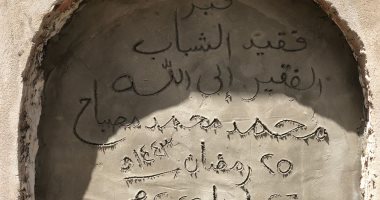 قبر
فقيد الشباب
الفقير إلى الله
محمد محمد مصباح
٢٥ رمضان ١٤٤٣هـ